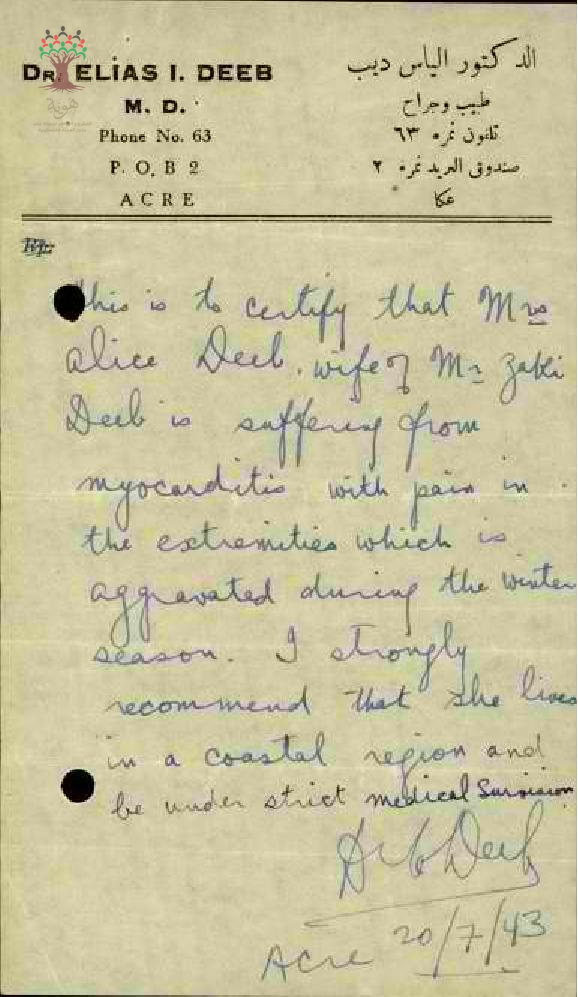 DR. ELIAS I. DEEB
M. D.
Phone No. 63
P. O. B 2
ACRE
الدكتور الياس ديب
طبيب وجراح
تلفون نمره ٦٣
صندوق البريد نمره ٢
عكا
هوية
This is to certify that Mrs
Alice Deeb, wife of Mr Zaki
Deeb is suffering from
myocarditis with pain in
the extremities which is
aggravated during the winter
season. I strongly
recommend that she lives
in a coastal region and
be under strict medical
Deeb
Acre 20/7/43